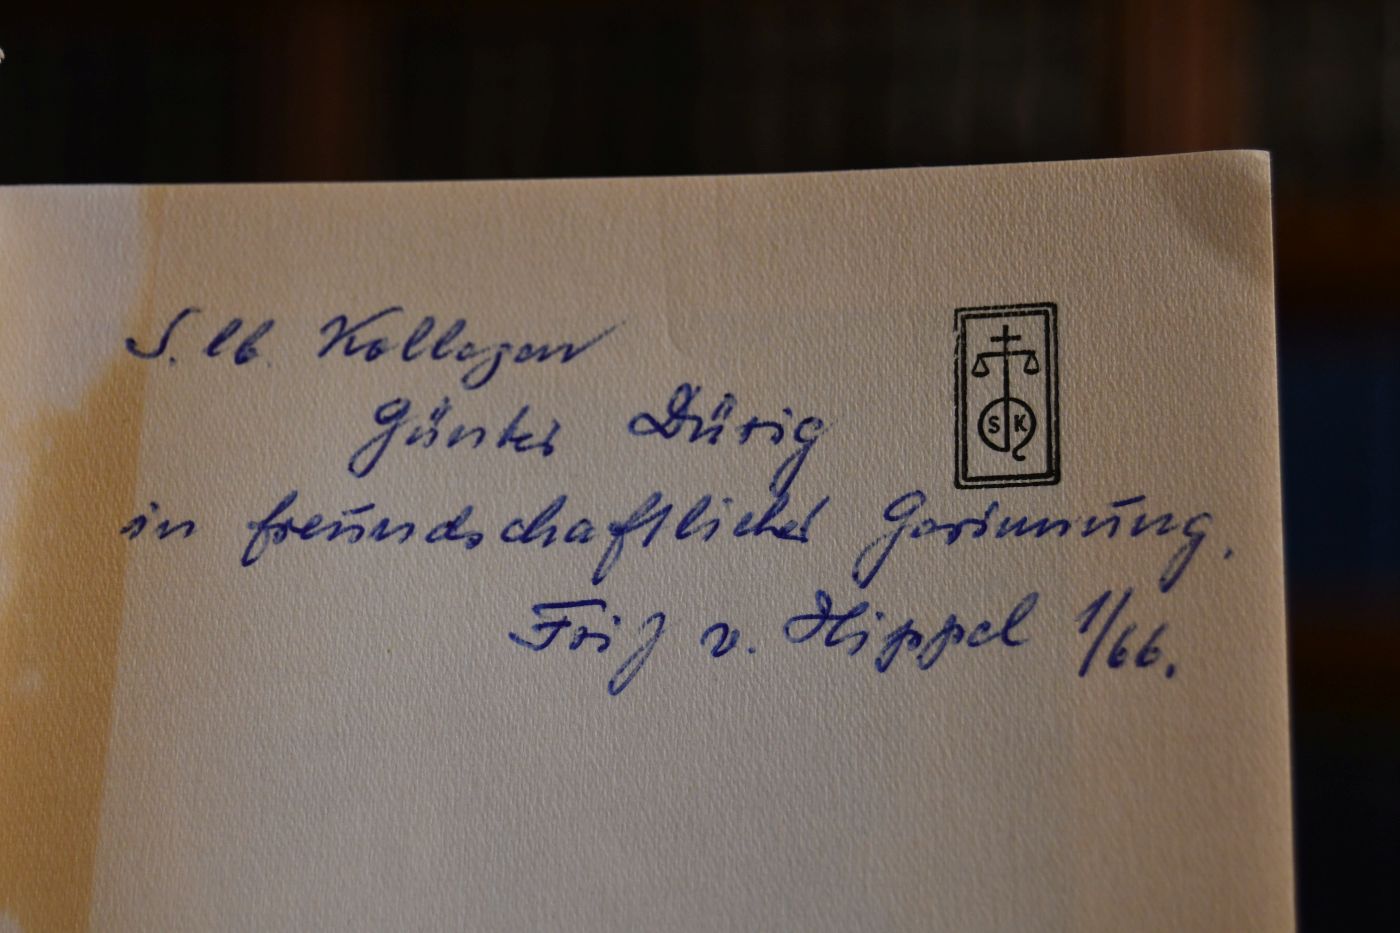 S. lb. Kollegen
Günter Dürig
in freundschaftlicher Gesinnung.
Fritz v. Hippel 1/66.
S K